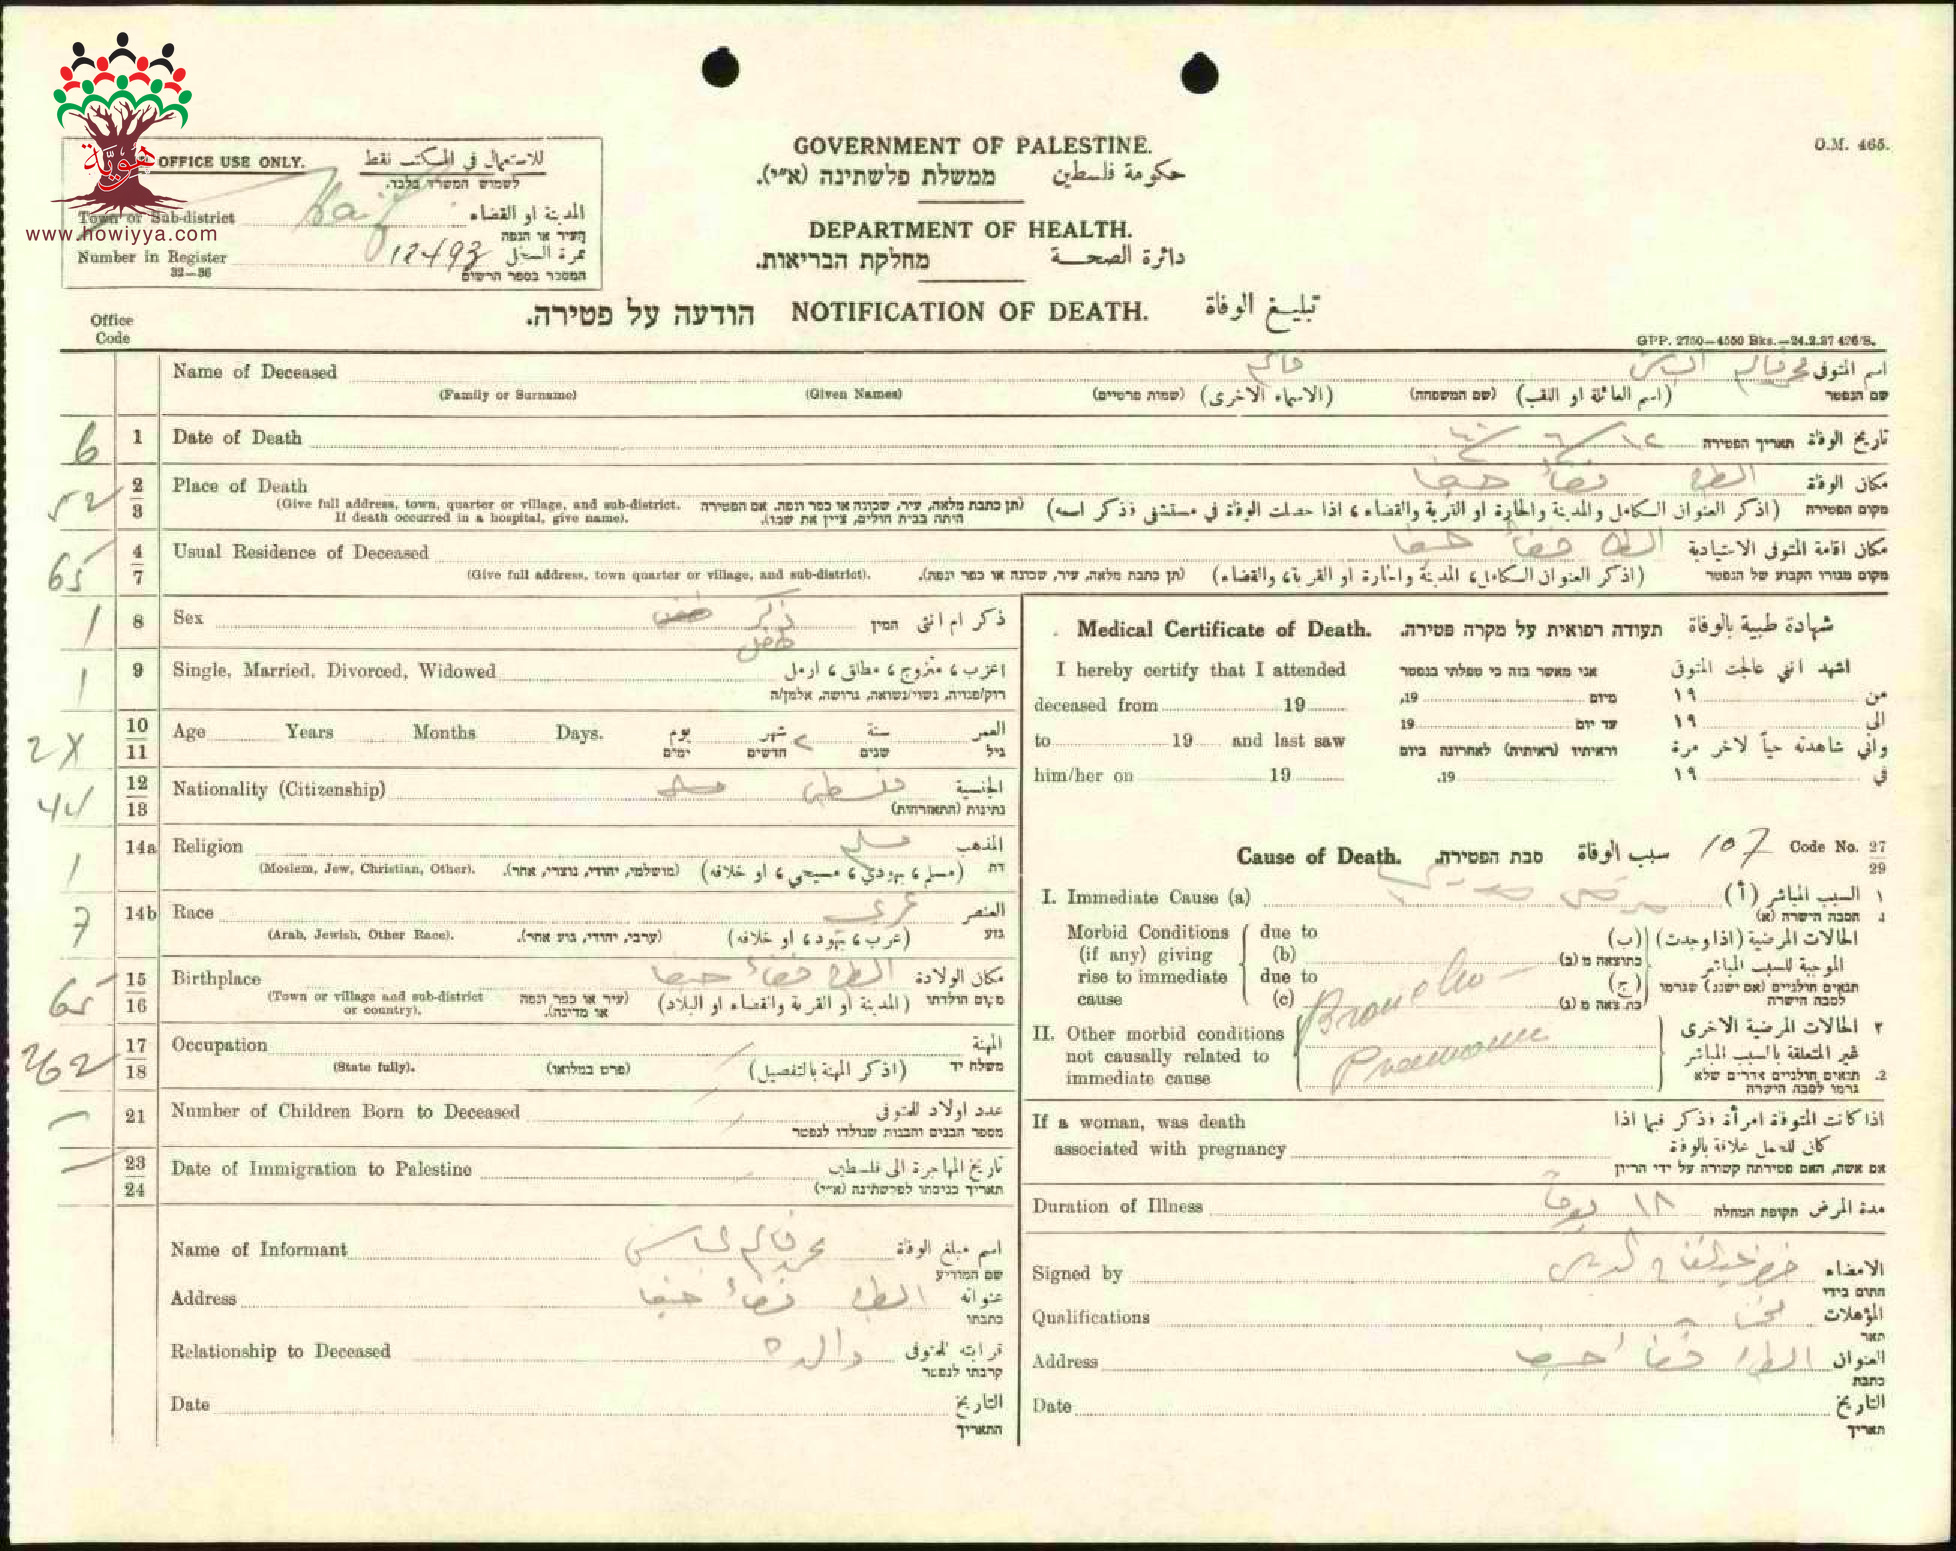 هوية
www.howiyya.com
OFFICE USE ONLY. للاستعمال في المكتب فقط
לשמוש המשרד בלבד.
Town or Sub-district Haifa المدينة او القضاء
העיר או הנפה
Number in Register 12493 نمرة السجل
32—36 המספר בספר הרשום
GOVERNMENT OF PALESTINE.
ממשלת פלשתינה (א״י). حكومة فلسطين
DEPARTMENT OF HEALTH.
מחלקת הבריאות. دائرة الصحة
O.M. 465.
הודעה על פטירה. NOTIFICATION OF DEATH. تبليغ الوفاة
Office
Code
GPP. 2750—4550 Bks.—24.2.37 426/S.
Name of Deceased قاسم محمد قاسم اسم المتوفى
(Family or Surname) (Given Names) (שמות פרטיים) (الاسماء الاخرى) (שם המשפחה) (اسم العائلة او اللقب) שם הנפטר
6 1 Date of Death תאריך הפטירה تاريخ الوفاة
52 2 3 Place of Death الطيرة قضاء حيفا مكان الوفاة
(Give full address, town, quarter or village, and sub-district. If death occurred in a hospital, give name).
(תן כתבת מלאה, עיר, שכונה או כפר ונפה. אם הפטירה היתה בבית חולים, ציין את שמו).
(اذكر العنوان الكامل والمدينة والحارة او القرية والقضاء، اذا حصلت الوفاة في مستشفى فذكر اسمه) מקום הפטירה
65 4 7 Usual Residence of Deceased الطيرة قضاء حيفا مكان اقامة المتوفى الاعتيادية
(Give full address, town quarter or village, and sub-district). (תן כתבת מלאה, עיר, שכונה או כפר ונפה). (اذكر العنوان الكامل، المدينة والحارة او القرية، والقضاء) מקום מגורו הקבוע של הנפטר
1 8 Sex ذكر המין ذكر ام انثى
طفل
1 9 Single, Married, Divorced, Widowed اعزب، متزوج، مطلق، ارمل
רוק/פנויה, נשוי/נשואה, גרוש/ה, אלמן/ה
2X 10 11 Age Years Months Days. يوم شهر ٢ سنة العمر
ימים חדשים שנים גיל
44 12 13 Nationality (Citizenship) فلسطيني الجنسية
נתינות (התאזרחות)
1 14a Religion مسلم المذهب
(Moslem, Jew, Christian, Other). (מושלמי, יהודי, נוצרי, אחר). (مسلم، يهودي، مسيحي، او خلافه) דת
7 14b Race عربي العنصر
(Arab, Jewish, Other Race). (ערבי, יהודי, גזע אחר). (عرب، يهود، او خلافه) גזע
65 15 16 Birthplace الطيرة قضاء حيفا مكان الولادة
(Town or village and sub-district or country). (עיר או כפר ונפה או מדינה). (المدينة او القرية والقضاء او البلاد) מקום הולדתו
262 17 18 Occupation المهنة
(State fully). (פרט במלואו) (اذكر المهنة بالتفصيل) משלח יד
21 Number of Children Born to Deceased عدد اولاد المتوفى
מספר הבנים והבנות שנולדו לנפטר
23 24 Date of Immigration to Palestine تاريخ المهاجرة الى فلسطين
תאריך כניסתו לפלשתינה (א״י)
Name of Informant محمد قاسم اسم مبلغ الوفاة
שם המודיע
Address الطيرة قضاء حيفا عنوانه
כתבתו
Relationship to Deceased والده قرابته للمتوفى
קרבתו לנפטר
Date التاريخ
התאריך
Medical Certificate of Death. תעודה רפואית על מקרה פטירה. شهادة طبية بالوفاة
I hereby certify that I attended אני מאשר בזה כי טפלתי בנפטר اشهد انني عالجت المتوفى
deceased from 19 19, מיום ١٩ من
19 עד יום ١٩ الى
to 19 and last saw וראיתיו (ראיתיה) לאחרונה ביום واني شاهدته حياً لآخر مرة
him/her on 19 19. ١٩ في
Cause of Death. סבת הפטירה. سبب الوفاة 107 Code No. 27 29
I. Immediate Cause (a) السبب المباشر (أ) ١
הסבה הישרה (א) 1.
Morbid Conditions (if any) giving rise to immediate cause
due to (b)
due to (c)
الحالات المرضية (اذا وجدت) (ب)
כתוצאה מ (ב)
الموجبة للسبب المباشر (ج)
תנאים חולניים (אם ישנם) שגרמו לסבה הישרה
Broncho-
Pneumonia
II. Other morbid conditions not causally related to immediate cause
٢ الحالات المرضية الاخرى
غير المتعلقة بالسبب المباشر
2. תנאים חולניים אחרים שלא גרמו לסבה הישרה
If a woman, was death associated with pregnancy
اذا كانت المتوفة امرأة فذكر فيما اذا
كان للحمل علاقة بالوفاة
אם אשה, האם פטירתה קשורה על ידי הריון
Duration of Illness ١٨ יום תקופת המחלה مدة المرض
Signed by الامضاء
חתום בידי
Qualifications المؤهلات
תאר
Address الطيرة قضاء حيفا العنوان
כתבת
Date التاريخ
תאריך